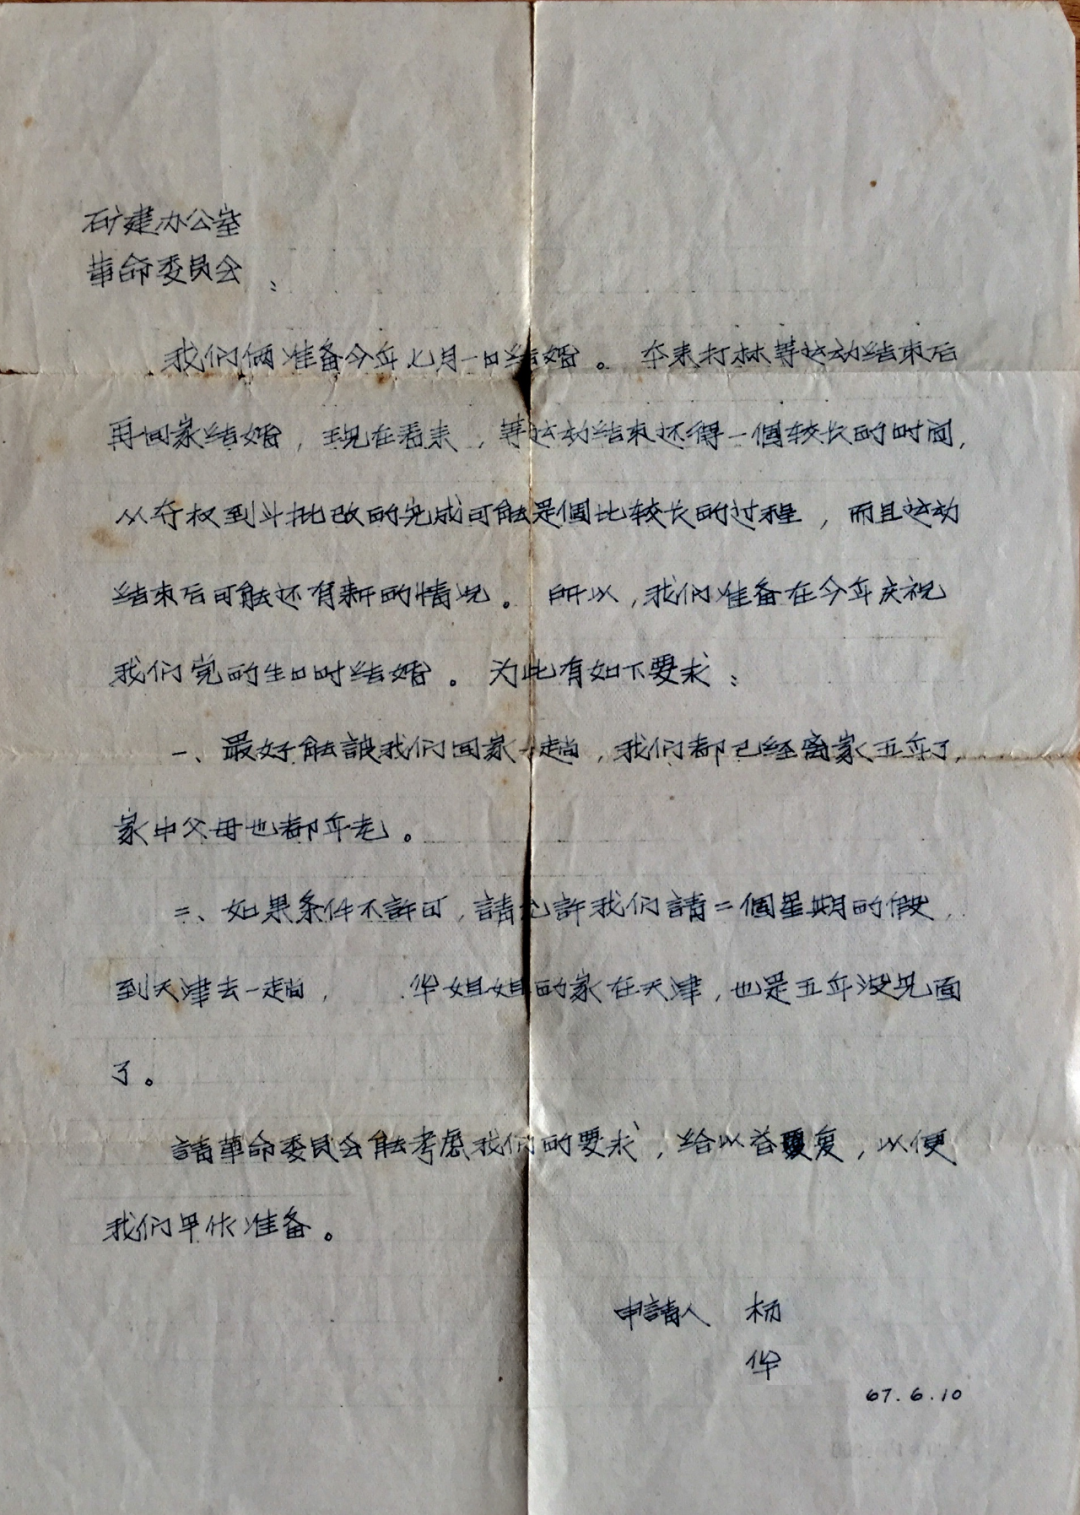 矿建办公室
革命委员会：
我们俩准备今年七月一日结婚。本来打祘等运动结束后
再回家结婚，现在看来，等运动结束还得一個较长的时间，
从夺权到斗批改的完成可能是個比较长的过程，而且运动
结束后可能还有新的情况。所以，我们准备在今年庆祝
我们党的生日时结婚。为此有如下要求：
一、最好能讓我们回家一趟，我们都已经离家五年了，
家中父母也都年老。
二、如果条件不許可，請允許我们請二個星期的假，
到天津去一趟，华姐姐的家在天津，也是五年没见面
了。
請革命委员会能考虑我们的要求，给以答复，以便
我们早作准备。
申請人 杨
华
67.6.10